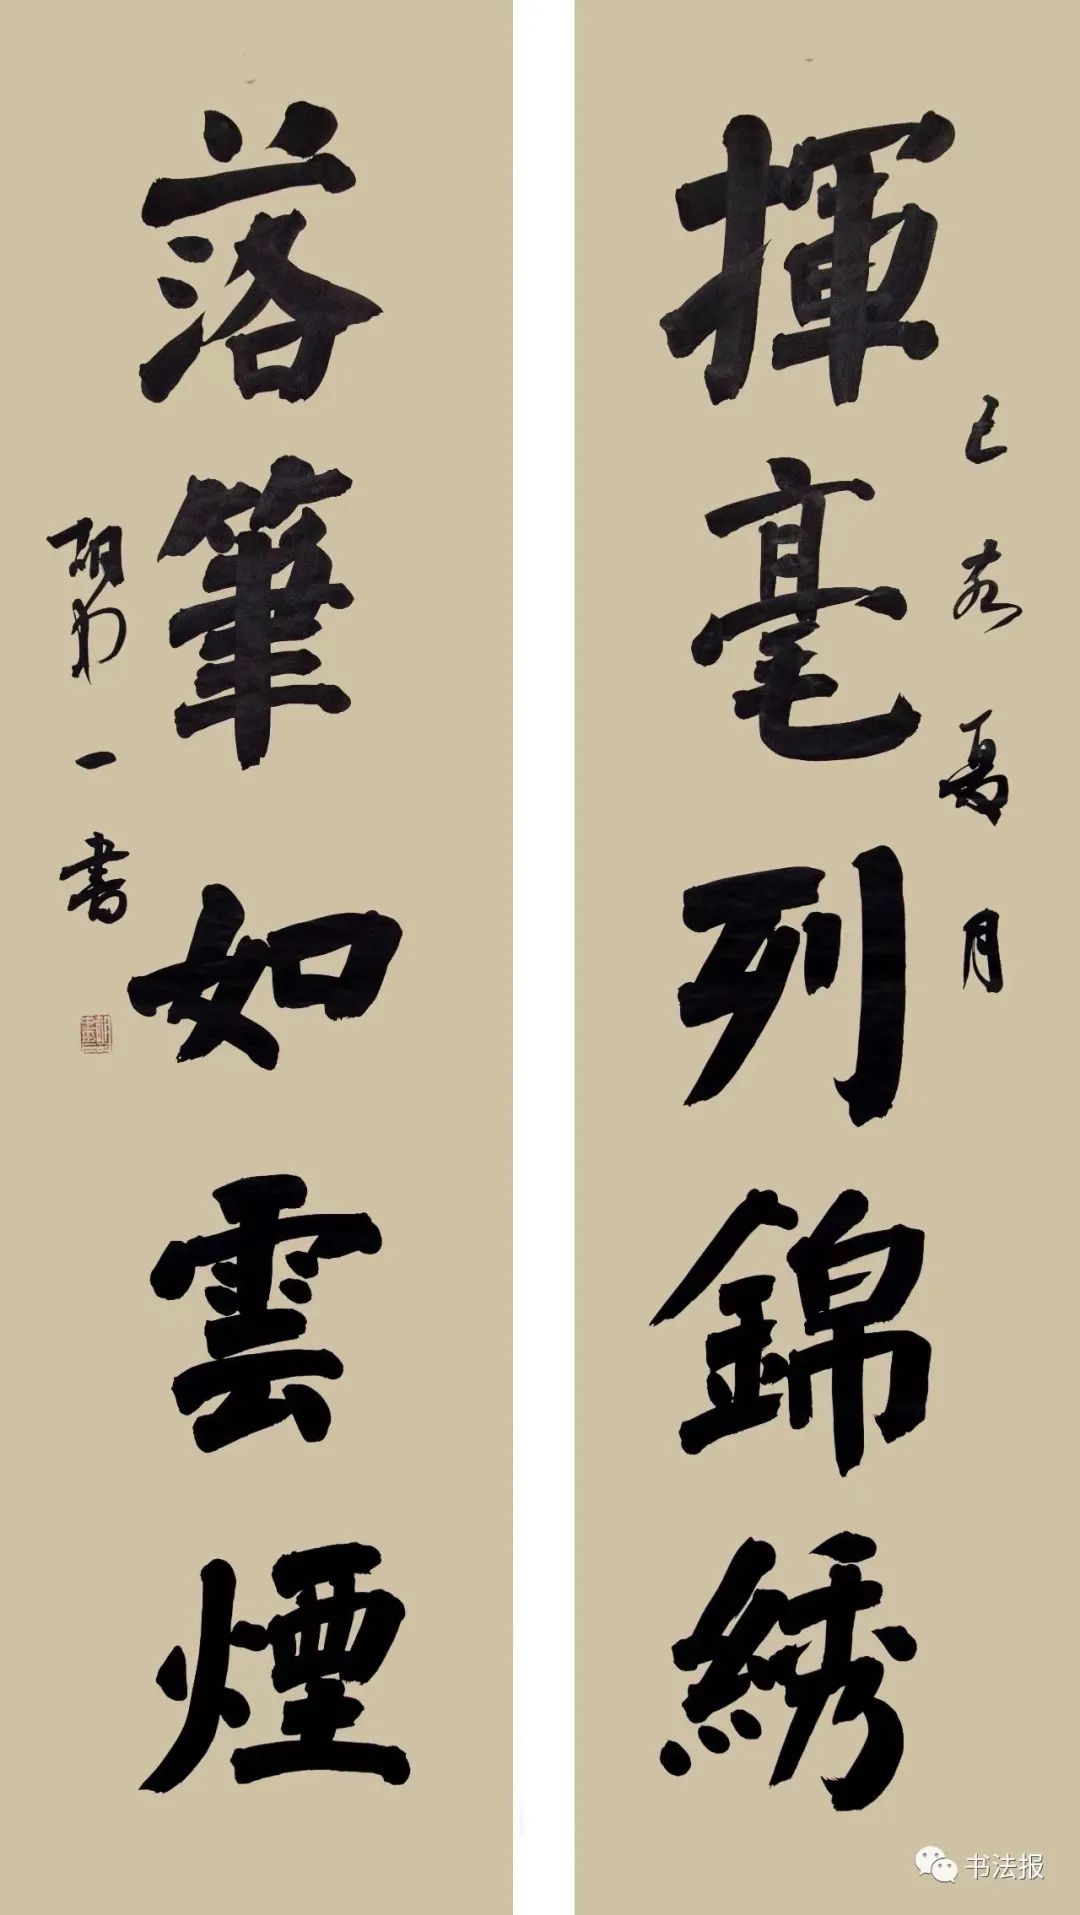 己亥夏月
揮毫列錦綉
落筆如雲煙
胡一書
书法报